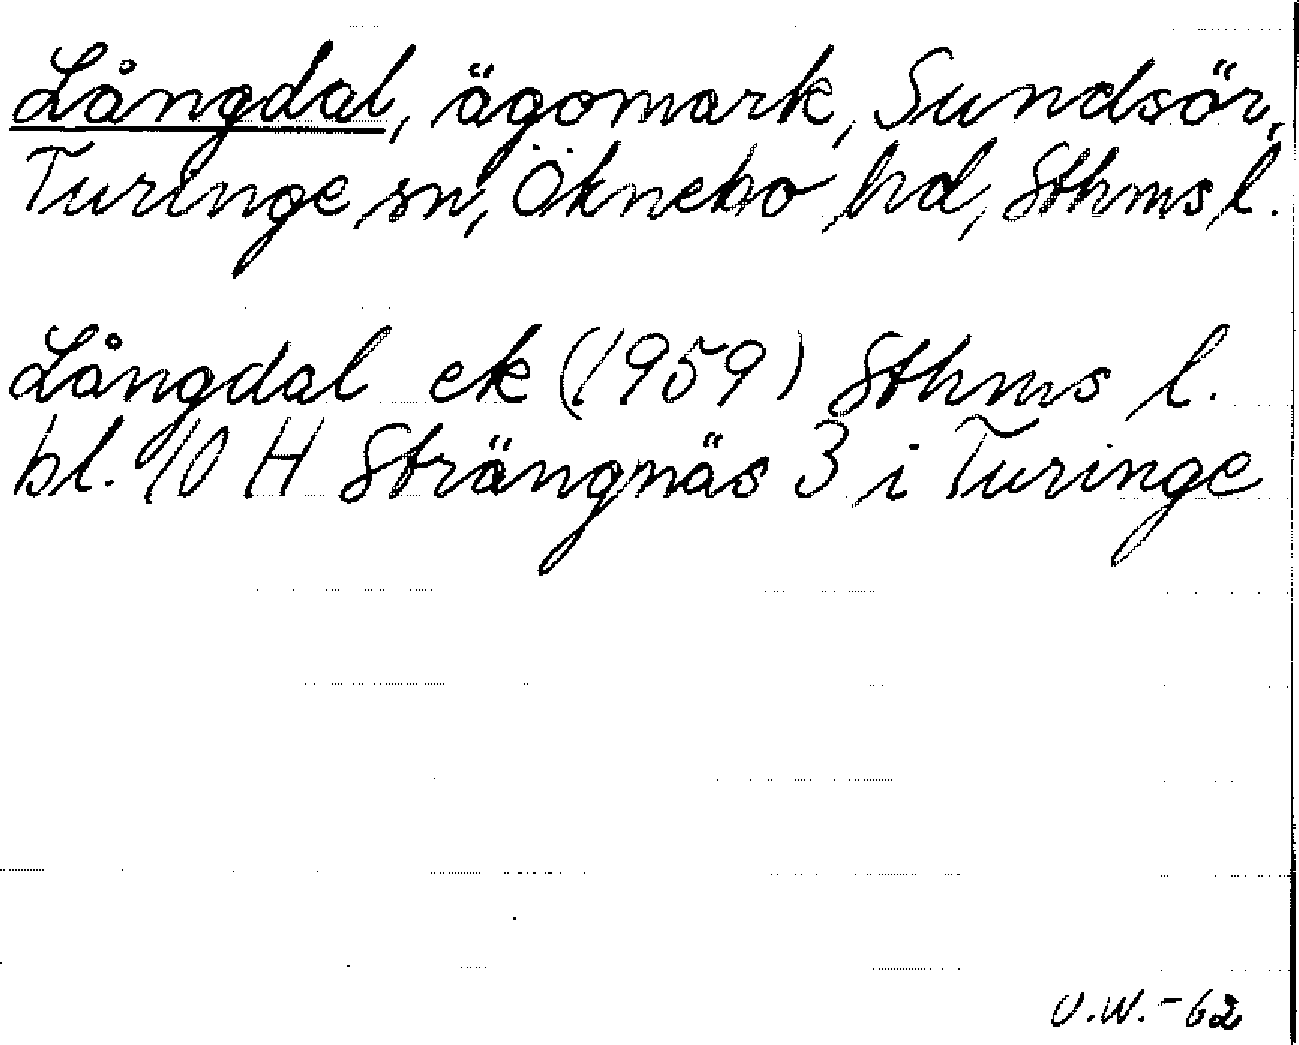 Långdal, ägomark, Sundsör,
Turinge sn, Öknebo hd, Sthms l.
Långdal ek (1959) Sthms l.
bl. 10 H Strängnäs 3 i Turinge
U.W.-62